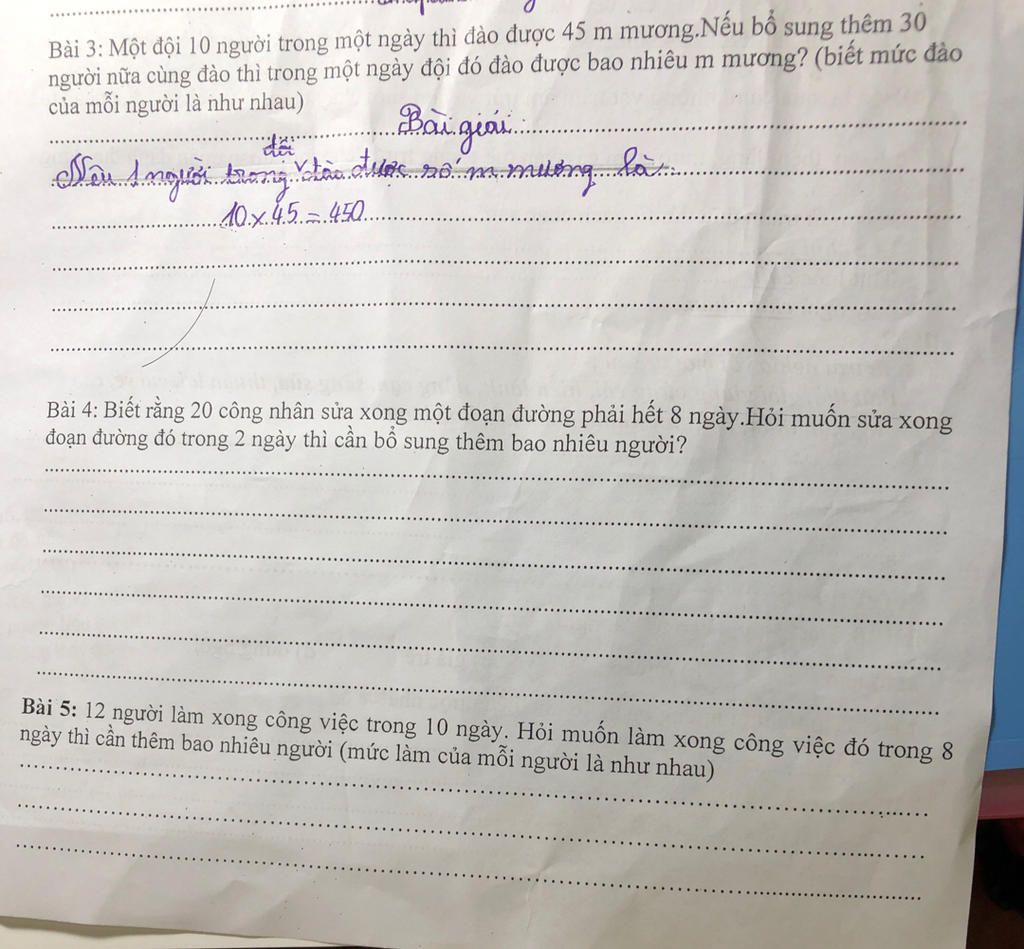 Bài 3: Một đội 10 người trong một ngày thì đào được 45 m mương.Nếu bổ sung thêm 30
người nữa cùng đào thì trong một ngày đội đó đào được bao nhiêu m mương? (biết mức đào
của mỗi người là như nhau)
Bài giải
đội
Nếu 1 người trong đào được số m mương là:
10 x 45 = 450
Bài 4: Biết rằng 20 công nhân sửa xong một đoạn đường phải hết 8 ngày.Hỏi muốn sửa xong
đoạn đường đó trong 2 ngày thì cần bổ sung thêm bao nhiêu người?
Bài 5: 12 người làm xong công việc trong 10 ngày. Hỏi muốn làm xong công việc đó trong 8
ngày thì cần thêm bao nhiêu người (mức làm của mỗi người là như nhau)